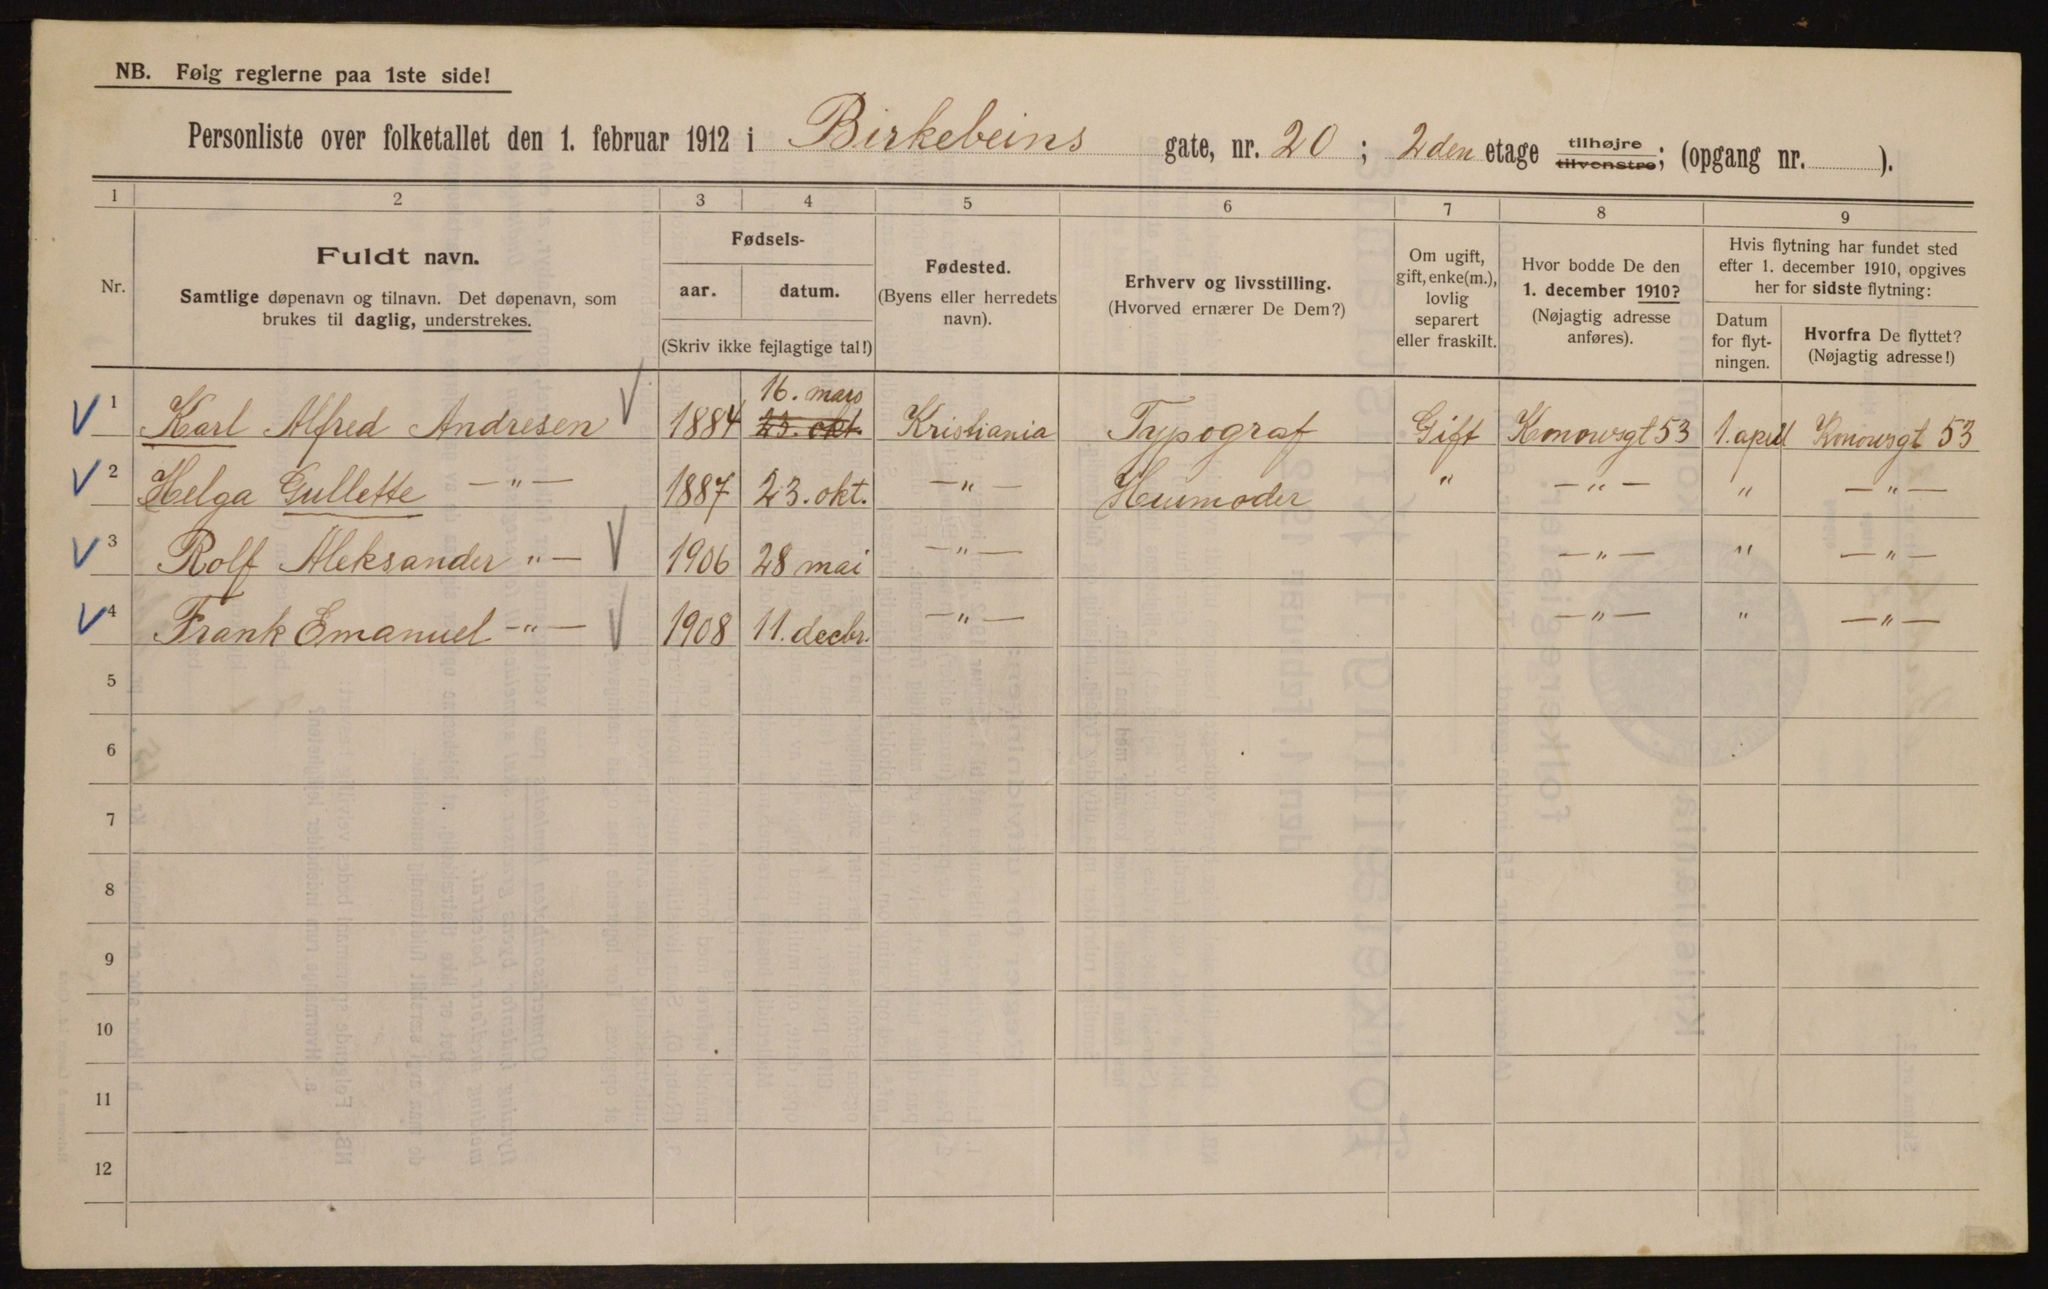 NB. Følg reglerne paa 1ste side!
Personliste over folketallet den 1. februar 1912 i Birkebeins gate, nr. 20 ; 2den etage tilhøjre tilvenstre; (opgang nr. ).
1 2 3 4 5 6 7 8 9
Nr.
Fuldt navn.
Samtlige døpenavn og tilnavn. Det døpenavn, som
brukes til daglig, understrekes.
Fødsels-
aar. datum.
(Skriv ikke fejlagtige tal!)
Fødested.
(Byens eller herredets
navn).
Erhverv og livsstilling.
(Hvorved ernærer De Dem?)
Om ugift,
gift, enke(m.),
lovlig
separert
eller fraskilt.
Hvor bodde De den
1. december 1910?
(Nøjagtig adresse
anføres).
Hvis flytning har fundet sted
efter 1. december 1910, opgives
her for sidste flytning:
Datum
for flyt-
ningen.
Hvorfra De flyttet?
(Nøjagtig adresse!)
16. mars
1 Karl Alfred Andresen 1884 23. okt. Kristiania Typograf Gift Konowsgt 53 1. april Konowsgt 53
2 Helga Gullette — " — 1887 23. okt. — " — Husmoder " — " — " — " —
3 Rolf Aleksander " — 1906 28 mai — " — — " — " — " —
4 Frank Emanuel — " — 1908 11. decbr. — " — — " — " — " —
5
6
7
8
9
10
11
12